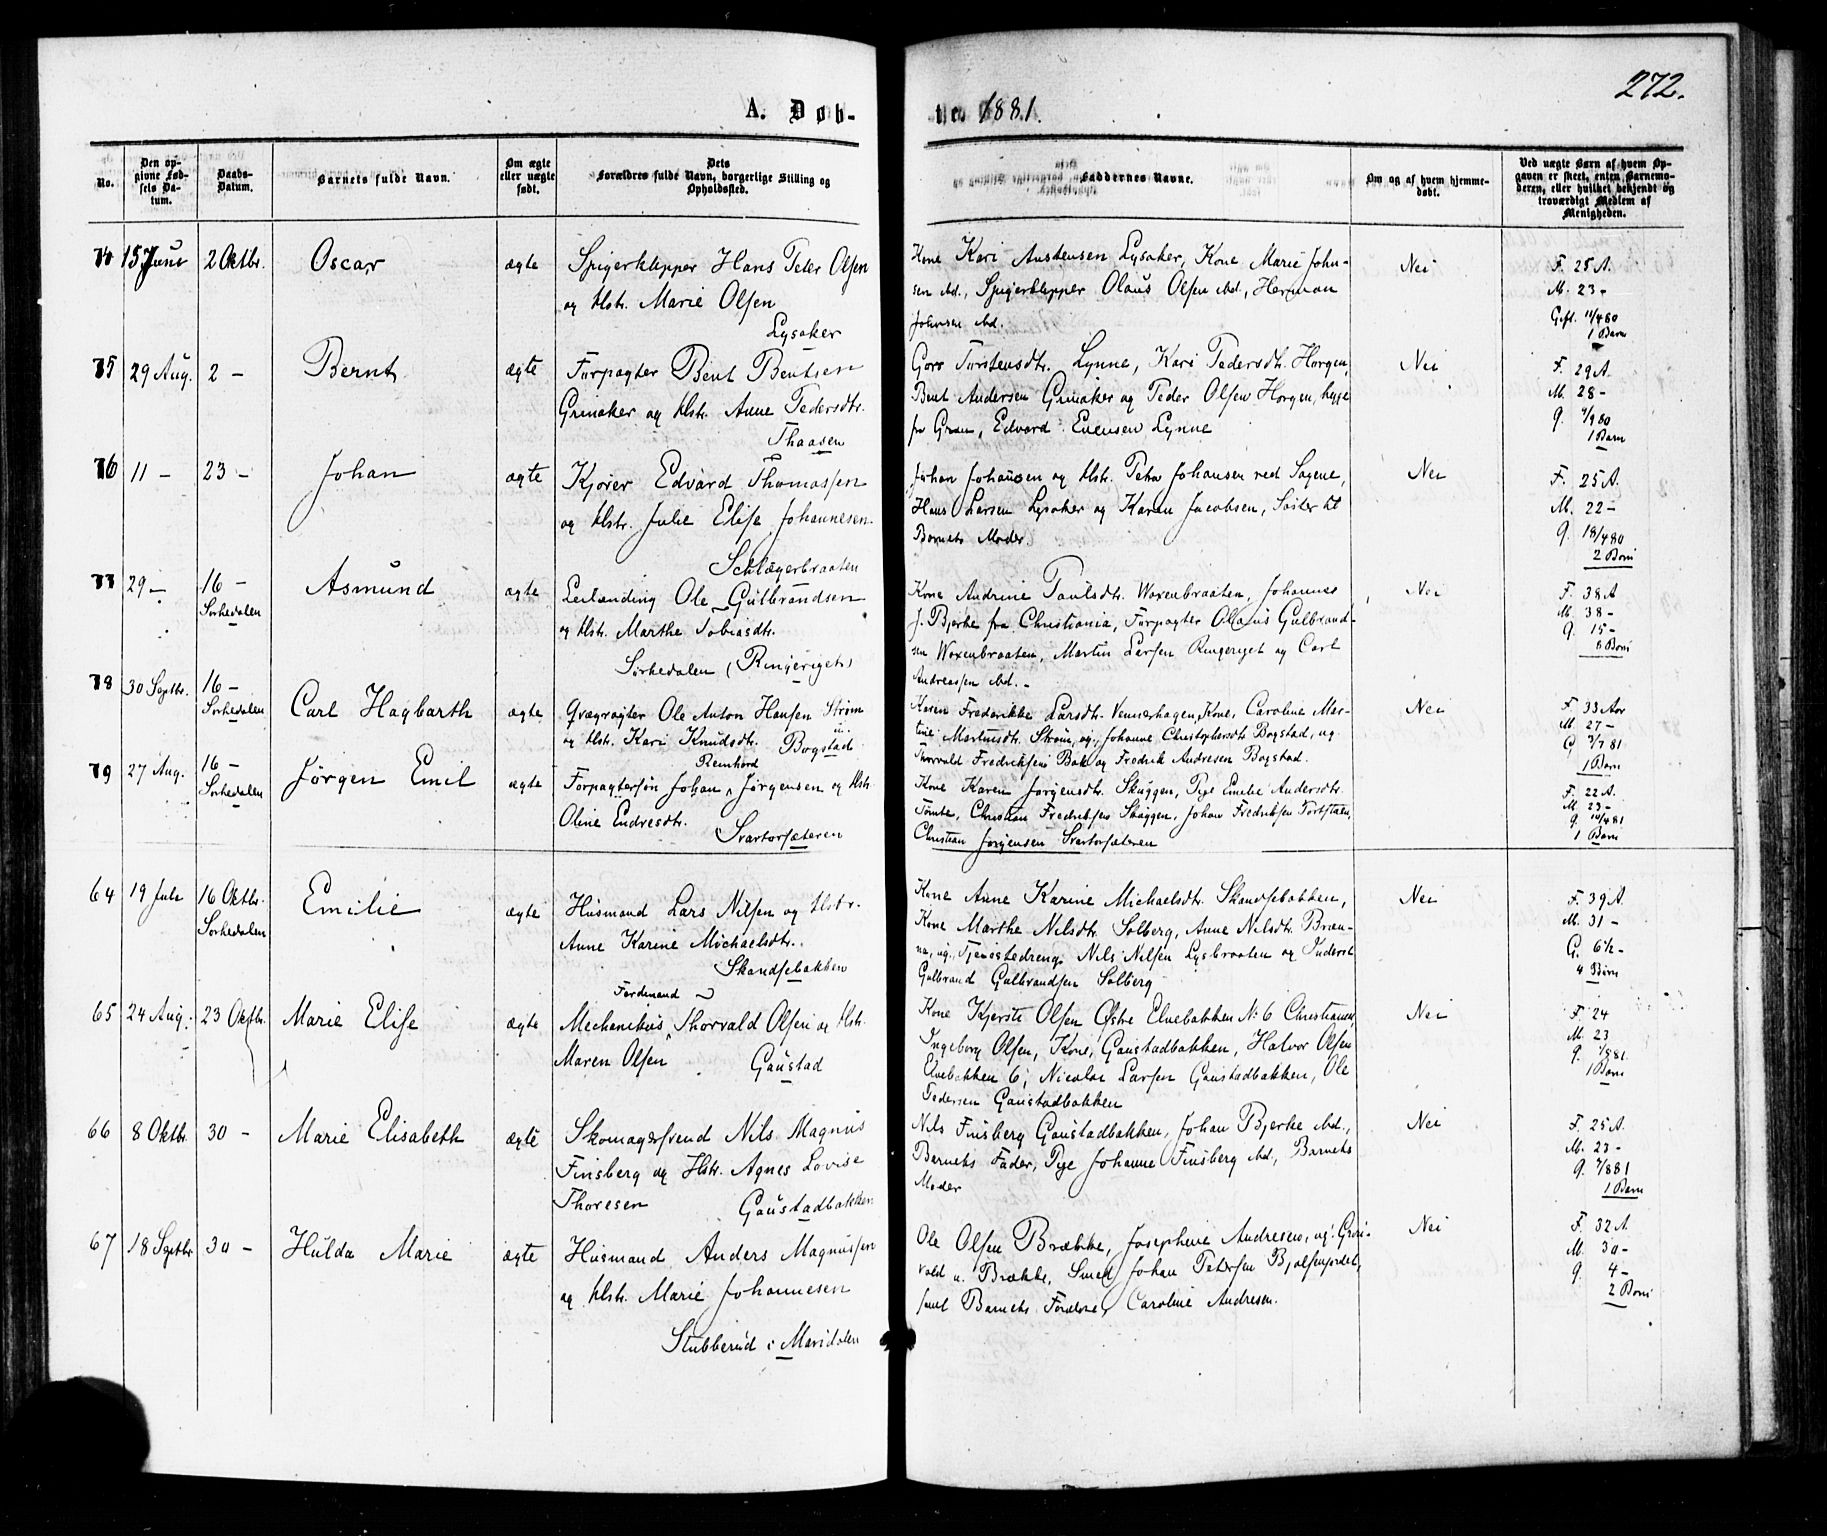 272.
A. Døb-
te. 1881.
No.
Den op-
givne Fød-
sels Da-
tum.
Daabs-
Datum.
Barnets fulde Navn.
Om ægte
eller uægte
født.
Dets
Forældres fulde Navn, borgerlige Stilling og
Opholdssted.
Faddernes Navne.
Om og af hvem hjemme-
døbt.
Ved uægte Barn af hvem Op-
gaven er skeet, enten Barnemo-
deren, eller hvilket bekjendt og
troværdigt Medlem af
Menigheden.
74 15 Juni 2 Oktbr. Oscar ægte Spigerklipper Hans Peder Olsen
og Hstr. Marie Olsen
Lysaker
Kone Kari Austensen Lysaker, Kone Marie John-
sen ibd., Spigerklipper Olaus Olsen ibd, Herman
Johnsen ibd.
Nei
F. 25 A.
M. 23 -
Gift. 11/4 80
1 Barn
75 29 Aug. 2 - Bernt ægte Forpagter Bent Bentsen
Grinaker og Hstr. Anne Pedersdtr.
Thaasen
Goro Torstensdtr. Lynne, Kari Pedersdtr. Horgen,
Bent Andersen Grinaker og Peder Olsen Horgen, begge
fra Gran, Edvard Evensen Lynne
Nei
F. 29 A.
M. 28 -
g. /9 80
1 Barn
76 11 - 23 - Johan ægte Kjører Edvard Thomassen
og Hstr. Julie Elise Johannesen
Schlægerbraaten
Johan Johansen og Hstr. Petra Johansen ved Sagene,
Hans Larsen Lysaker og Karen Jacobsen, Søster til
Barnets Moder.
Nei
F. 25 A.
M. 22 -
g. 18/4 80
2 Børn
77 29 - 16 -
Sørkedalen
Asmund ægte Leilænding Ole Gulbrandsen
og Hstr. Marthe Tobiasdtr.
Sørkedalen (Ringeriget)
Kone Andrine Paulsdtr. Woxenbraaten, Johannes
J. Bjerke fra Christiania, Forpagter Olaus Gulbrand-
sen Woxenbraaten, Martin Larsen Ringeriget og Carl
Andreassen ibd. -
Nei
F. 38 A
M. 38 -
g. 15 -
6 Børn
78 30 Septbr. 16 -
Sørkedalen
Carl Hagbarth ægte Qvægrøgter Ole Anton Hansen Strøm
og Hstr. Kari Knudsdtr. u. Bogstad
Karen Frederikke Larsdtr. Vennerhagen, Kone, Caroline Mar-
tine Martinsdtr. Strøm, ug., Johanne Christophersdtr Bogstad, ug
Thorvald Fredriksen Bak og Fredrik Andresen Bogstad.
Nei
F. 33 Aar
M. 27 -
G 3/7 81
1 Barn
79 27 Aug. 16 -
Sørkedalen
Jørgen Emil ægte Reinhord
Forpagtersøn Johan Jørgensen og Hstr
Oline Endresdtr.
Svartorsæteren
Kone Karen Jørgensdtr. Skuggen, Pige Emilie Andersdtr.
Tømte, Christian Fredriksen Skuggen, Johan Fredriksen
Christian Jørgensen Svartorsæteren
F. 22 A.
M. 23 -
g. 10/4 81
1 Barn
64 19 Juli 16 Oktbr.
Sørkedalen
Emilie ægte Husmand Lars Nilsen og Hstr.
Anne Karine Michaelsdtr.
Skandsebakken
Kone Anne Karine Michaelsdtr. Skandsebakken,
Kone Marthe Nilsdtr. Solberg, Anne Nilsdtr. Bræn-
na, ug., Tjenestedreng Nils Nilsen Lysbraaten og Inderst
Gulbrand Gulbrandsen Solberg
Nei
F. 39 A.
M. 31 -
G. 6½ -
4 Børn
65 24 Aug. 23 Oktbr. Marie Elise ægte Ferdinand
Mechanikus Thorvald Olsen og Hstr.
Maren Olsen Gaustad
Kone Kjersti Olsen Østre Elvebakken No 6 Christiania,
Ingeborg Olsen, Kone, Gaustadbakken, Halvor Olsen
Elvebakken 6, Nicolai Larsen Gaustadbakken, Ole
Pedersen Gaustadbakken
Nei
F. 24
M. 23
g. /8 81.
1 Barn
66 8 Oktbr. 30 - Marie Elisabeth ægte Skomagersvend Nils Magnus
Finsberg og Hstr. Agnes Lovise
Thoresen Gaustadbakken
Nils Finsberg Gaustadbakken, Johan Bjerke ibd.,
Barnets Fader, Pige Johanne Finsberg ibd, Barnets
Moder
Nei
F. 25 A.
M. 23 -
g. 7/8 81
1 Barn
67 18 Septbr 30 - Hulda Marie ægte Husmand Anders Magnussen
og Hstr. Marie Johannesen
Stubberud i Maridalen
Ole Olsen Brække, Josephine Andresen, ug. Grøn-
vold u. Brække, Smed Johan Petersen Bjølsenfordet,
samt Barnets Forældre, Caroline Andresen.
Nei
F. 32 A.
M. 30 -
g. 4 -
2 Børn